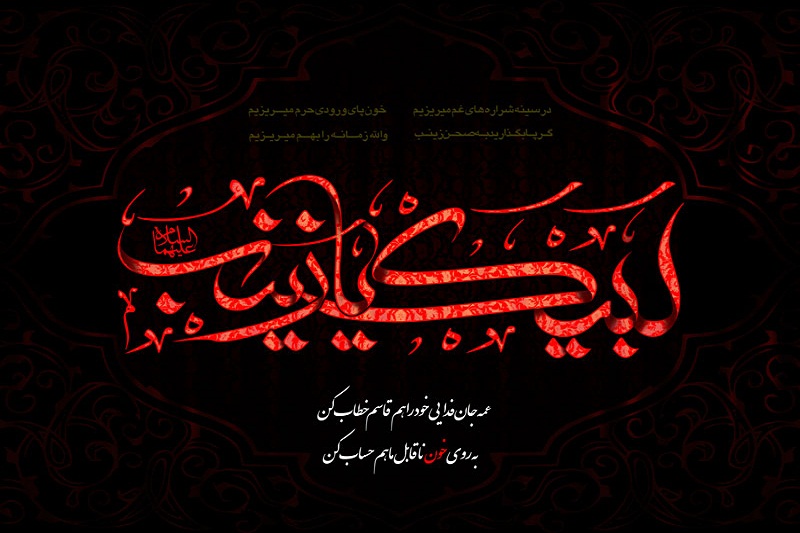 در سینه شراره های غم میریزیم خون پای ورودی حرم میریزیم
گر پا بگذارید به صحن زینب والله زمانه را بهم میریزیم
لبیک یا زینب
سلام الله علیها
عمه جان فدایی خود را هم قاسم خطاب کن
به روی خون ناقابل ما هم حساب کن